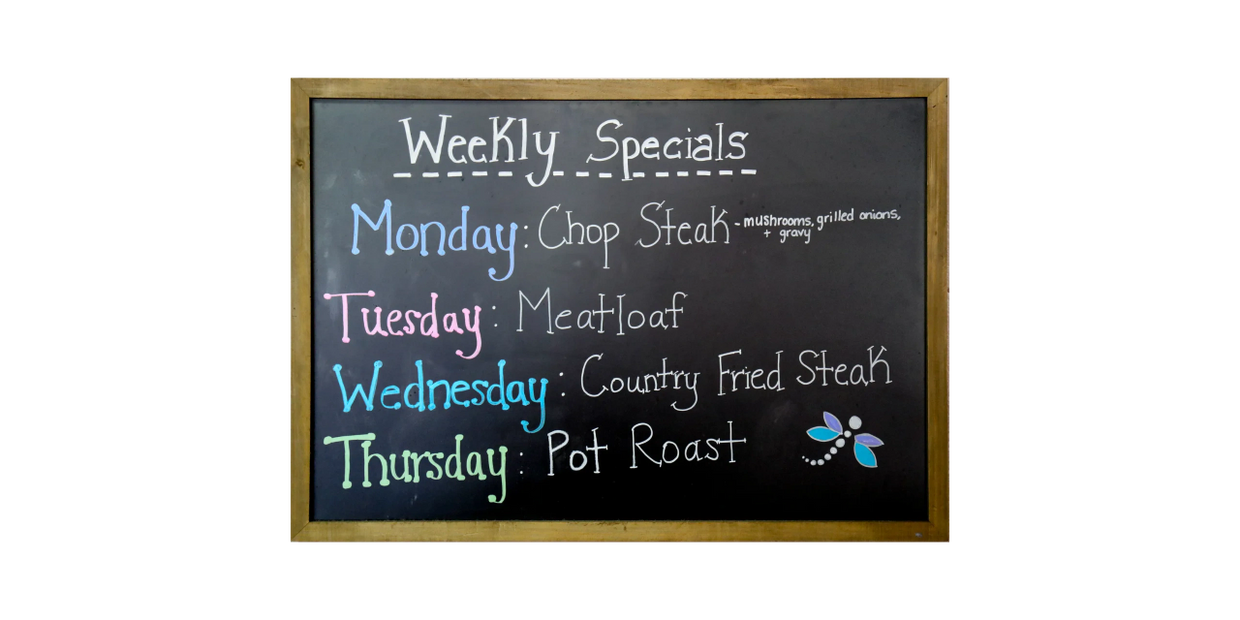 Weekly Specials
Monday: Chop Steak - mushrooms, grilled onions,
+ gravy
Tuesday: Meatloaf
Wednesday: Country Fried Steak
Thursday: Pot Roast